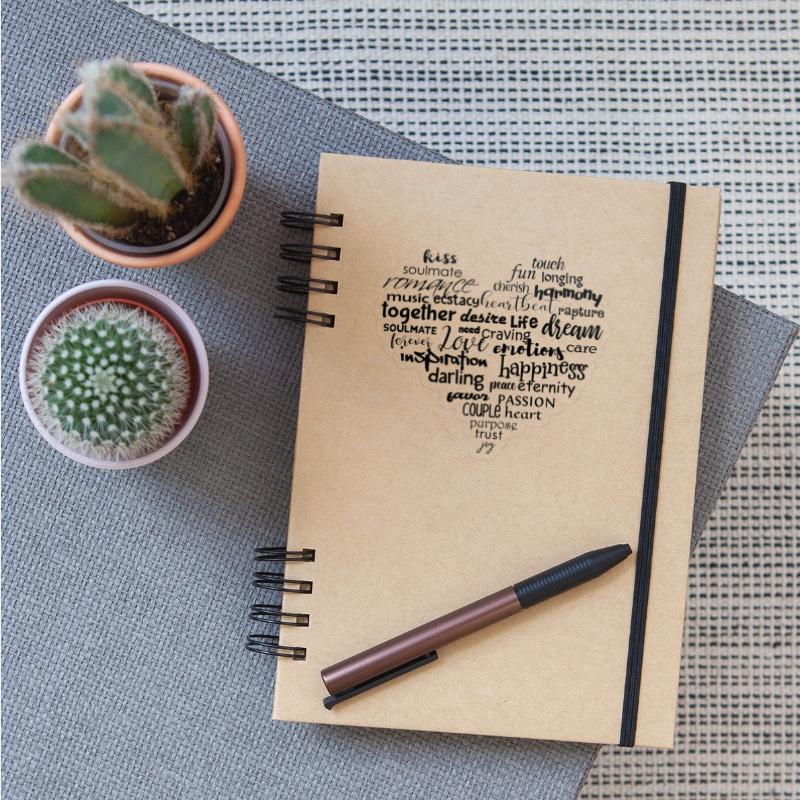 kiss touch
soulmate fun longing
romance cherish harmony
music ecstacy heartbeat rapture
together desire Life dream
SOULMATE need CRAVING
forever Love emotions care
inspiration happiness
darling peace eternity
favor PASSION
COUPLE heart
purpose
trust
joy